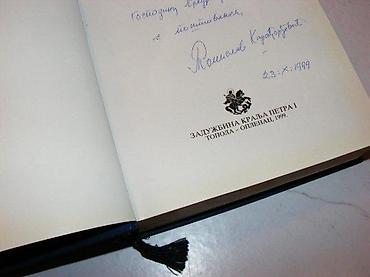 Господину
с поштовањем,
Томислав Карађорђевић
23-X-1999
ЗАДУЖБИНА КРАЉА ПЕТРА I
ТОПОЛА - ОПЛЕНАЦ, 1999.